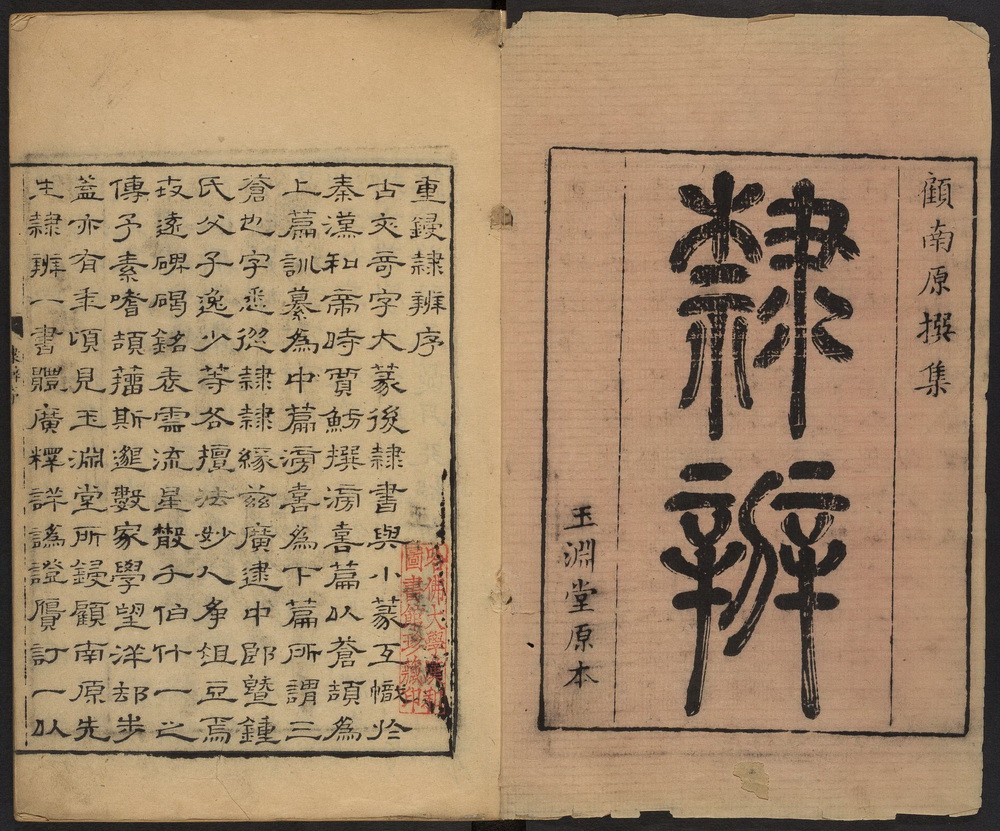 顧南原撰集
隸辨
玉淵堂原本
重鋟隸辨序
古文奇字大篆後隸書與小篆互幟於
秦漢和帝時賈魴撰滂喜篇以蒼頡為
上篇訓纂為中篇滂喜為下篇所謂三
蒼也字悉從隸隸緣茲廣逮中郎曁鍾
氏父子逸少等各擅法妙人爭俎豆焉
遠碑碣銘表流星散千伯什一之
傳予素嗜頡籒斯邈數家學望洋却步
蓋亦有年頃見玉淵堂所鋟顧南原先
生隸辨一書體廣釋詳譌證贗訂一以
哈佛大學漢和
圖書館珍藏印